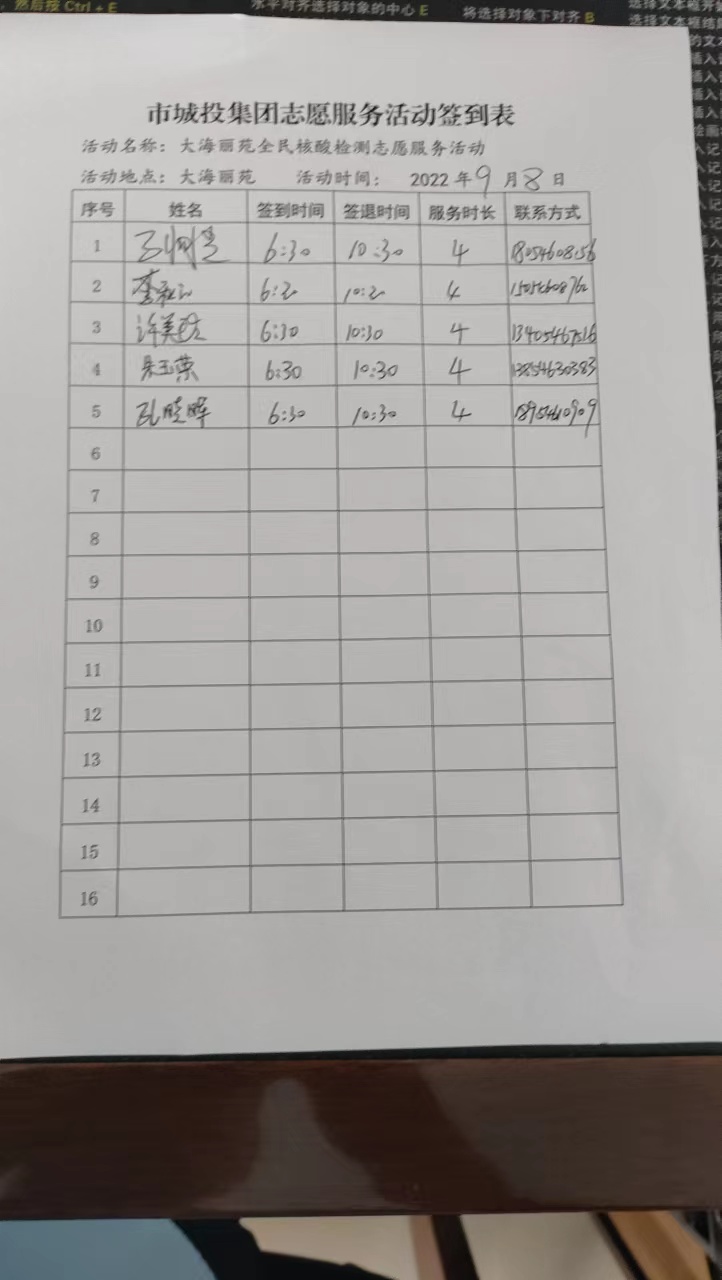 然后按 Ctrl + E
水平对齐选择对象的中心 E
将选择对象下对齐 B
市城投集团志愿服务活动签到表
活动名称：大海丽苑全民核酸检测志愿服务活动
活动地点：大海丽苑 活动时间： 2022 年 9 月 8 日
序号 姓名 签到时间 签退时间 服务时长 联系方式
1 6:30 10:30 4 18054608156
2 6:30 10:30 4
3 6:30 10:30 4 13405467516
4 朱玉荣 6:30 10:30 4 13854630383
5 孔晓晖 6:30 10:30 4
6
7
8
9
10
11
12
13
14
15
16